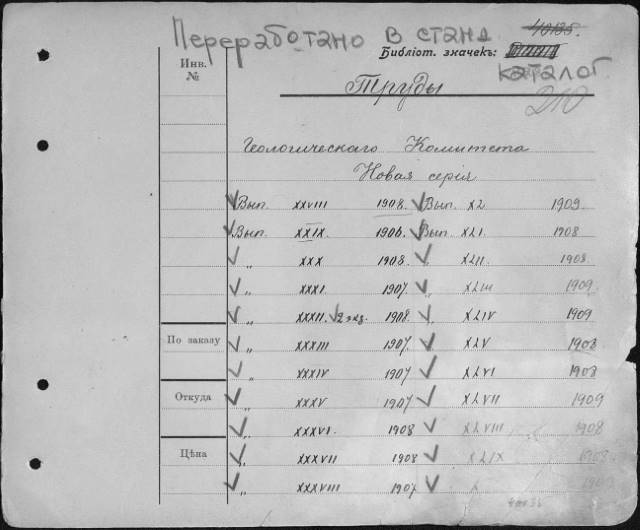 Переработано в станд
каталог
40135.
Библіот. значекъ:
Инв.
№
Труды
Геологическаго Комитета
Новая серія
Вып. XXVIII 1908. Вып. XL 1909
Вып. XXIX. 1906. Вып. XLI 1908
„ XXX 1908. „ XLII 1908.
„ XXXI. 1907. „ XLIII 1909
„ XXXII. 2 экз. 1908. „ XLIV 1909
По заказу „ XXXIII 1907. XLV 1908
„ XXXIV 1907. XLVI 1908
Откуда „ XXXV 1907 XLVII 1909
„ XXXVI. 1908 XLVIII 1908
Цѣна „ XXXVII 1908 XLIX 1908
„ XXXVIII 1907